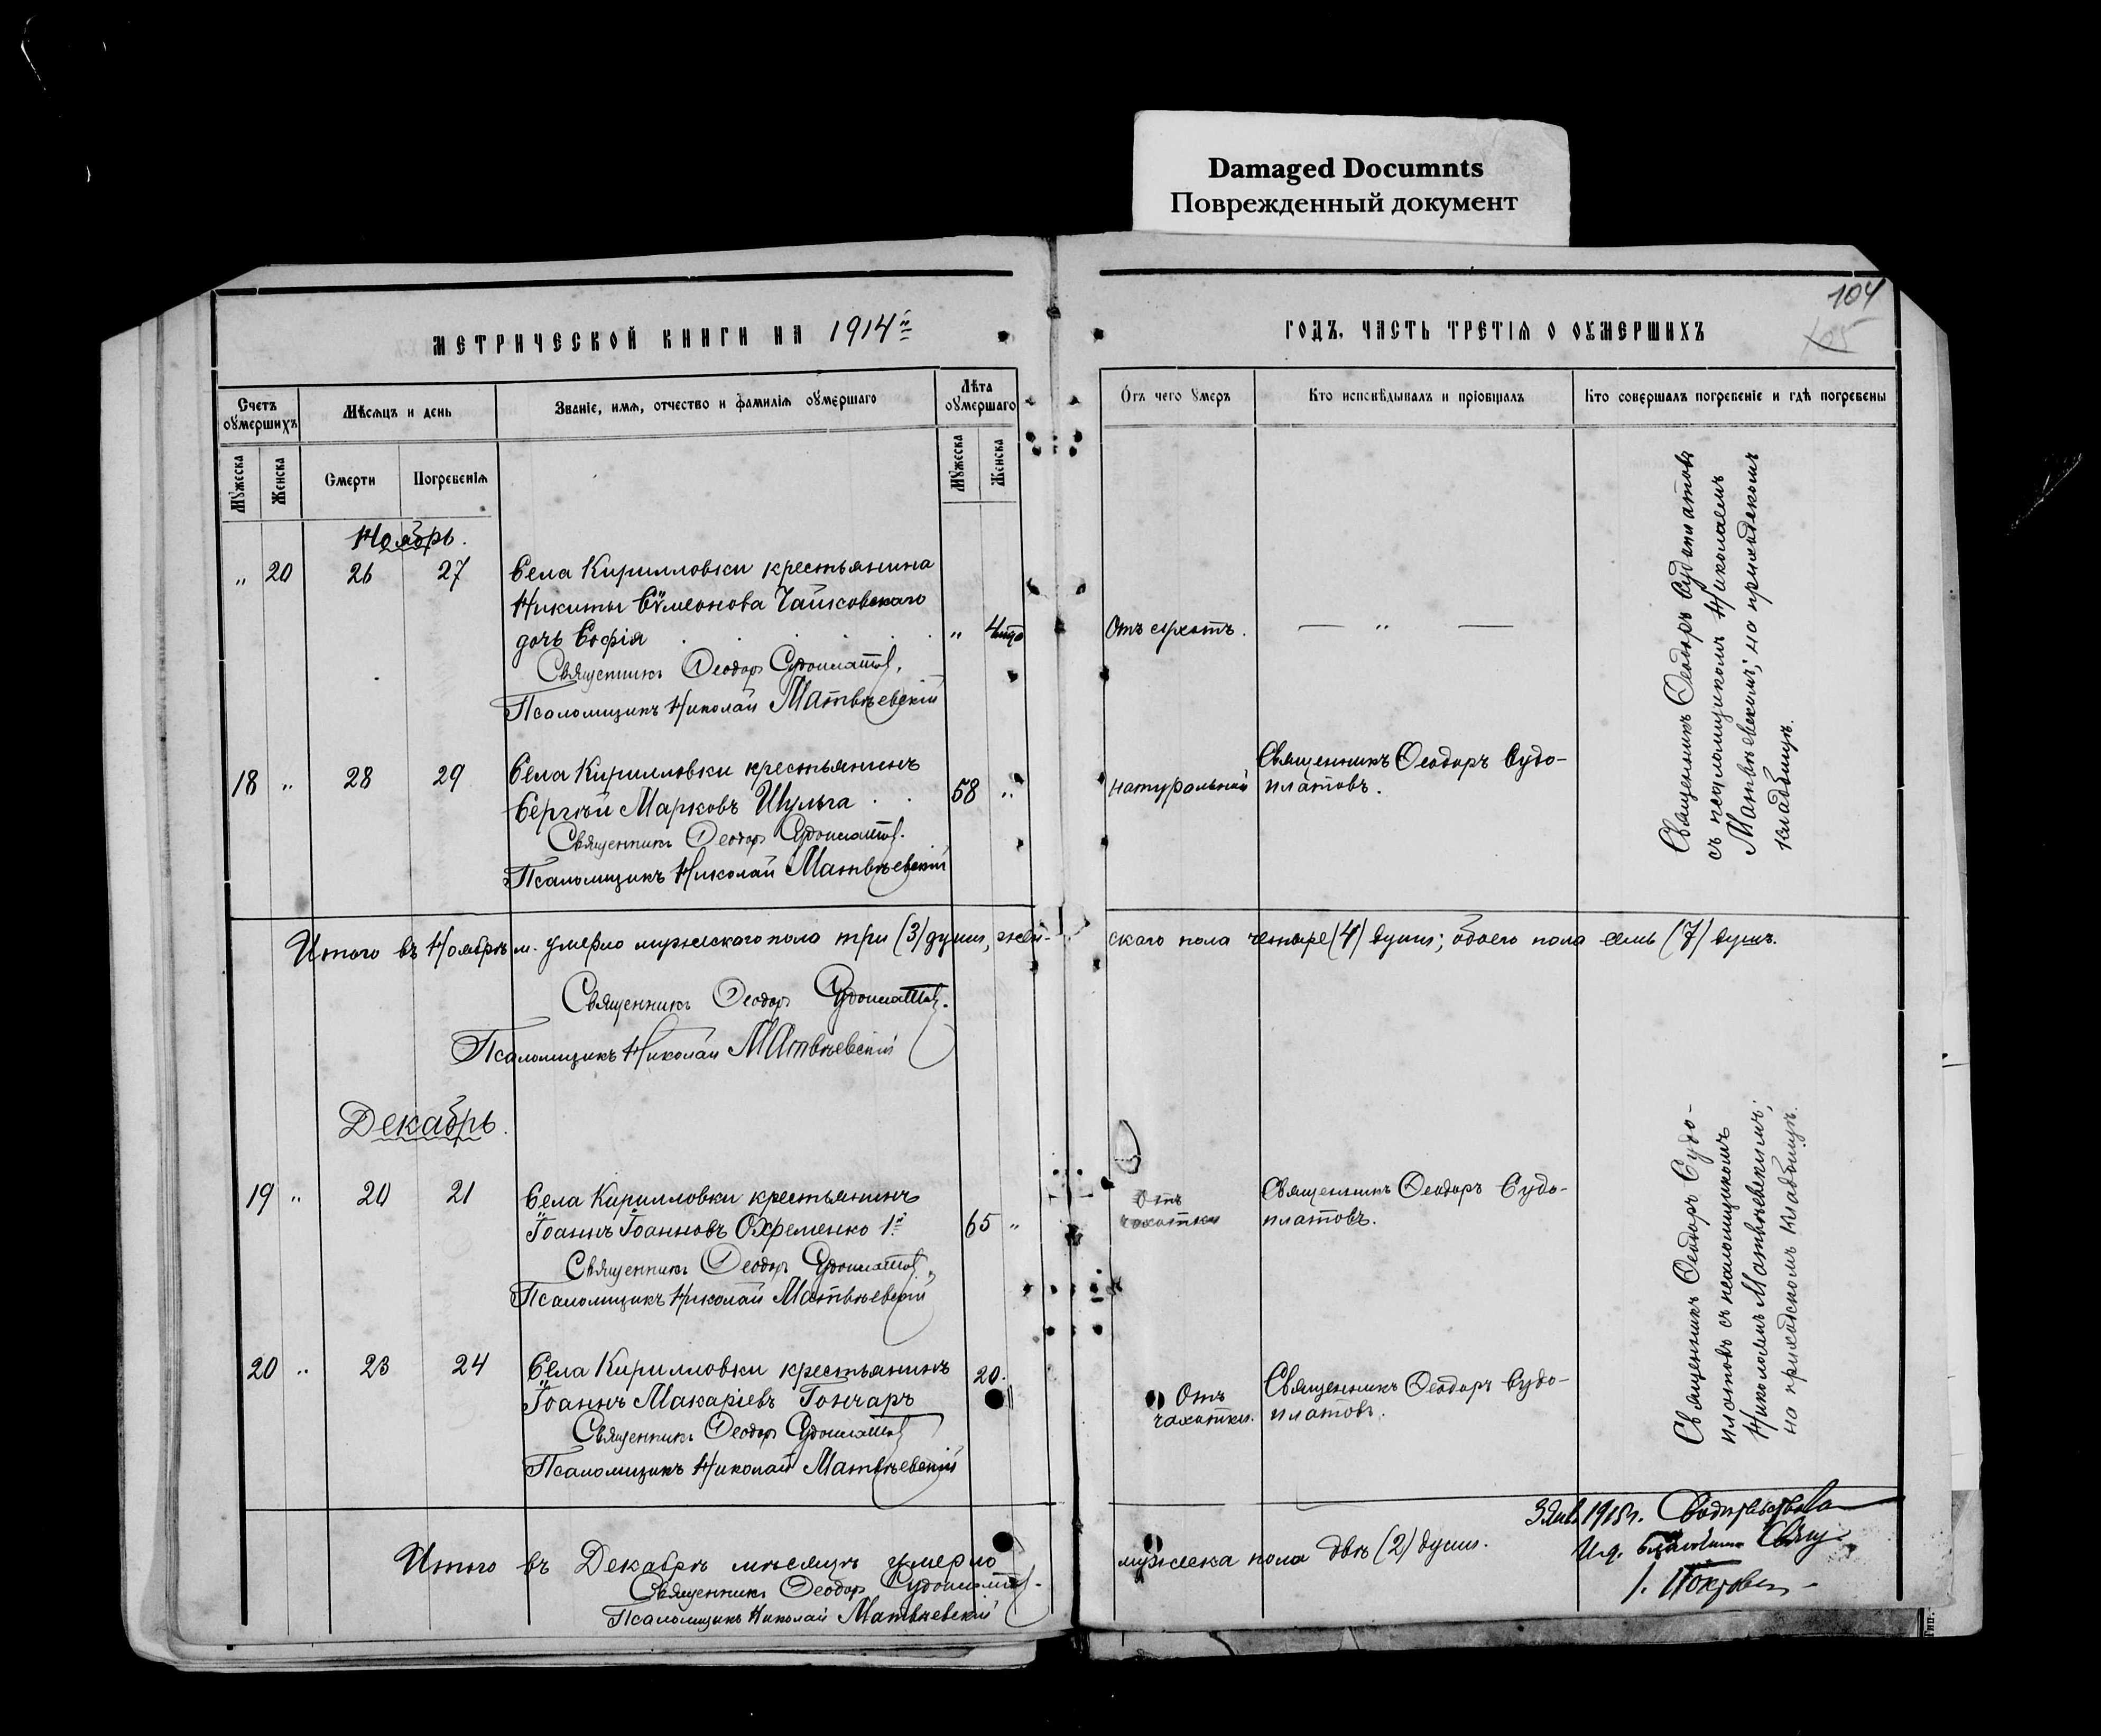 Damaged Documnts
Поврежденный документ
104
105
МЕТРИЧЕСКОЙ КНИГИ НА 1914й
ГОДЪ, ЧАСТЬ ТРЕТІѦ О ОУМЕРШИХЪ
Счетъ оумершихъ
Мѣсѧцъ и день
Званіе, имѧ, отчество и фамиліѧ оумершаго
Лѣта оумершаго
Отъ чего умеръ
Кто исповѣдывалъ и пріобщалъ
Кто совершалъ погребеніе и гдѣ погребены
Мужеска
Женска
Смерти
Погребеніѧ
Мужеска
Женска
Ноябрь.
„ 20 26 27 Села Кирилловки крестьянина
Никиты Сѵмеонова Чайковскаго
дочь Софія „ 4 Отъ сухотъ. — „ —
Священникъ Ѳеодоръ Судоплатовъ.
Псаломщикъ Николай Матвѣевскій
Священникъ Ѳеодоръ Судоплатовъ
съ псаломщикомъ Николаемъ
Матвѣевскимъ; на приходскомъ
кладбищѣ.
18 „ 28 29 Села Кирилловки крестьянинъ
Сергій Марковъ Шульга 58 „ натуральной Священникъ Ѳеодоръ Судо-
платовъ.
Священникъ Ѳеодоръ Судоплатовъ.
Псаломщикъ Николай Матвѣевскій
Итого въ Ноябрѣ м. умерло мужескаго пола три (3) души, жен-
скаго пола четыре (4) души; обоего пола семь (7) душъ.
Священникъ Ѳеодоръ Судоплатовъ.
Псаломщикъ Николай Матвѣевскій
Декабрь.
19 „ 20 21 Села Кирилловки крестьянинъ
Іоаннъ Іоанновъ Охременко 1й 65 „ Отъ чахотки Священникъ Ѳеодоръ Судо-
платовъ.
Священникъ Ѳеодоръ Судоплатовъ.
Псаломщикъ Николай Матвѣевскій
20 „ 23 24 Села Кирилловки крестьянинъ
Іоаннъ Макаріевъ Гончаръ 20. Отъ чахотки. Священникъ Ѳеодоръ Судо-
платовъ.
Священникъ Ѳеодоръ Судоплатовъ
Псаломщикъ Николай Матвѣевскій
Священникъ Ѳеодоръ Судо-
платовъ съ псаломщикомъ
Николаемъ Матвѣевскимъ;
на приходскомъ кладбищѣ.
Итого въ Декабрѣ мѣсяцѣ умерло
мужеска пола двѣ (2) души.
Священникъ Ѳеодоръ Судоплатовъ.
Псаломщикъ Николай Матвѣевскій
3 Янв. 1915 г.
И.д. Свящ.
Тип.